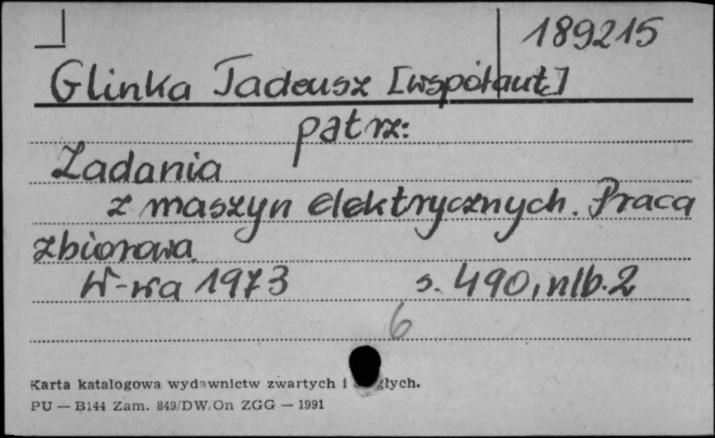 189215
Glinka Tadeusz [współaut.]
patrz:
Zadania
z maszyn elektrycznych. Praca
zbiorowa.
W-wa 1973 s. 490, nlb. 2
6
Karta katalogowa wydawnictw zwartych i
PU — B144 Zam. 849/DW/On ZGG — 1991